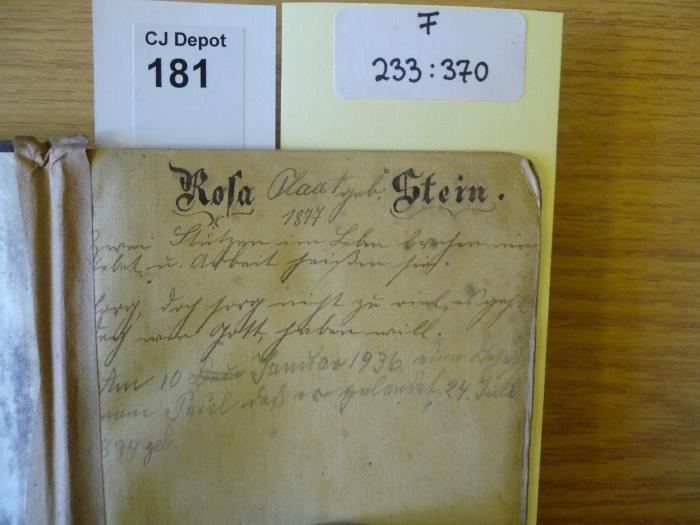 CJ Depot
181
F
233:370
Rosa Plaat geb. Stein.
1877
Zwei Stützen im Leben brechen nie
Gebet u. Arbeit heißen sie.
Sorg, doch sorg nicht zu viel, es geht
doch wie Gott haben will.
Am 10 Januar 1936 eine
von Paul daß er gelandet, 24. Juli
1894 geb.